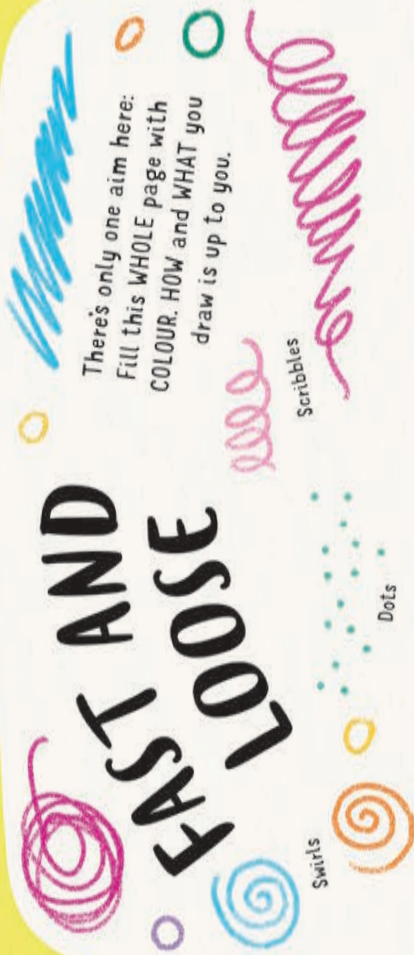 FAST AND
LOOSE
There's only one aim here:
Fill this WHOLE page with
COLOUR. HOW and WHAT you
draw is up to you.
Swirls
Dots
Scribbles